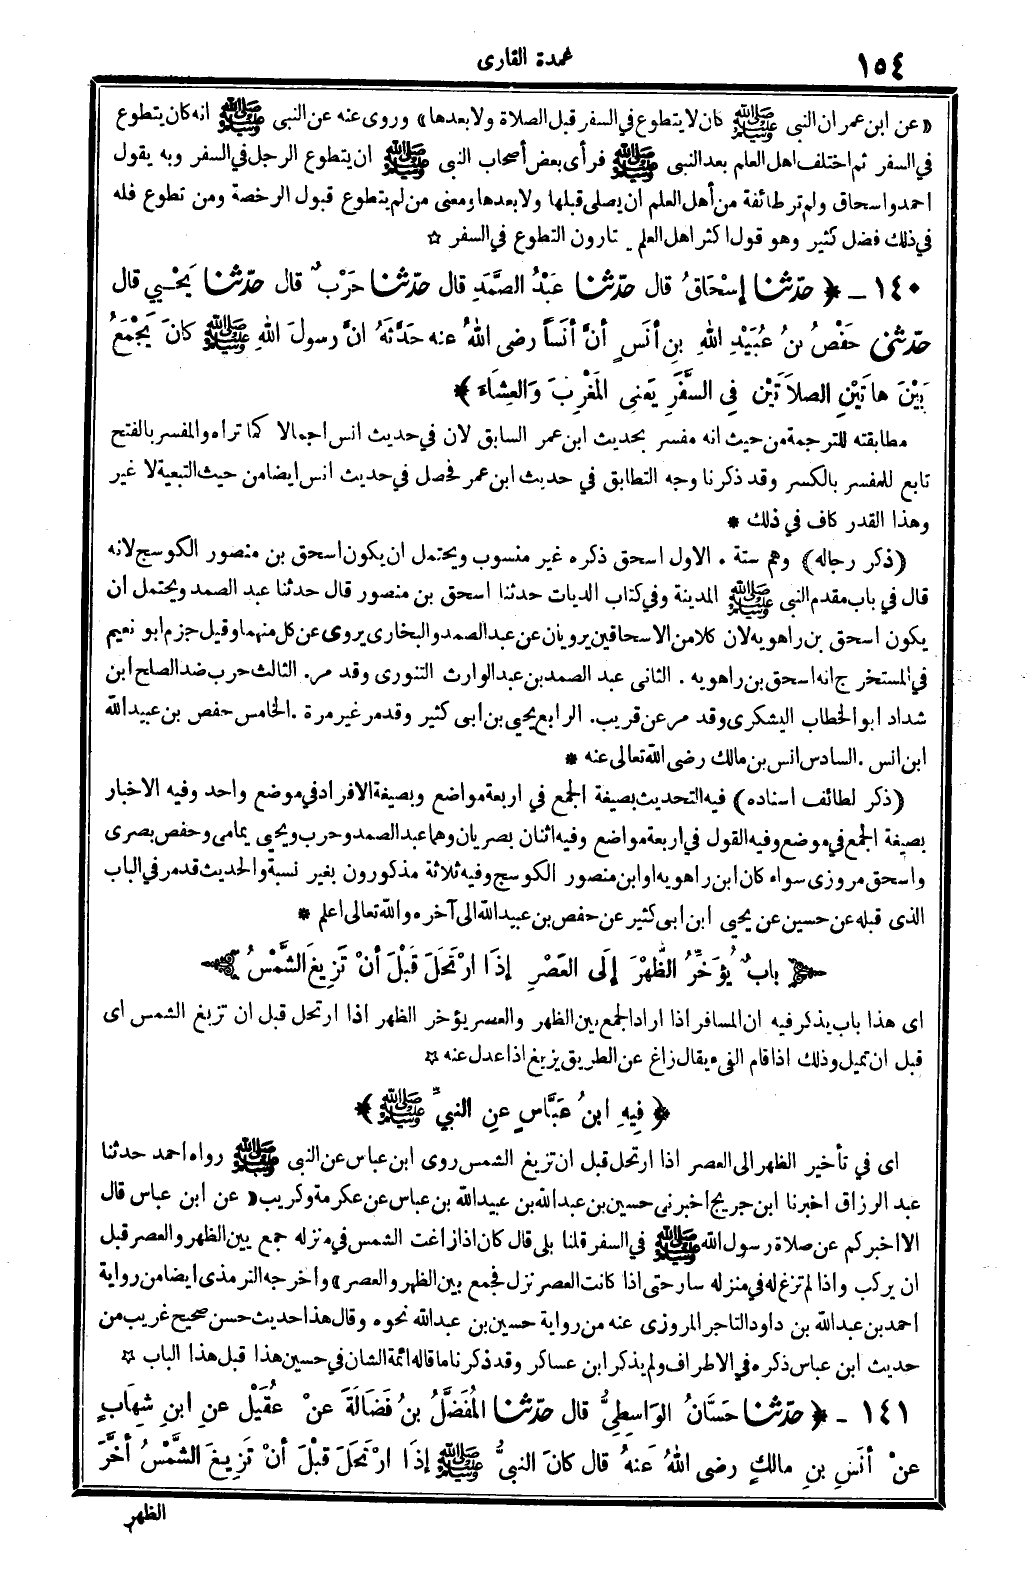 ١٥٤
عمدة القارى
« عن ابن عمر ان النبى ﷺ كان لا يتطوع فى السفر قبل الصلاة ولا بعدها » وروى عنه عن النبى ﷺ انه كان يتطوع
فى السفر ثم اختلف اهل العلم بعد النبى ﷺ فرأى بعض أصحاب النبى ﷺ ان يتطوع الرجل فى السفر وبه يقول
احمد واسحاق ولم تر طائفة من أهل العلم ان يصلى قبلها ولا بعدها ومعنى من لم يتطوع قبول الرخصة ومن تطوع فله
فى ذلك فضل كثير وهو قول اكثر اهل العلم يختارون التطوع فى السفر ☆
١٤٠ ـ ﴿ حَدَّثنا إِسْحَاقُ قال حَدَّثنا عَبْدُ الصَّمَدِ قال حَدَّثنا حَرْبٌ قال حَدَّثنا يَحْيٰي قال
حَدَّثنى حَفْصُ بنُ عُبَيْدِ اللهِ بنِ أنَسٍ أنَّ أنَسَاً رضى اللهُ عنه حَدَّثَهُ انَّ رسولَ اللهِ ﷺ كانَ يَجْمَعُ
بَيْنَ هاتَيْنِ الصلاَتَيْنِ فِى السَّفَرِ يَعنِى المَغْرِبَ وَالعِشَاءَ ﴾
مطابقته للترجمة من حيث انه مفسر بحديث ابن عمر السابق لان فى حديث انس اجمالا كما تراه والمفسر بالفتح
تابع للمفسر بالكسر وقد ذكرنا وجه التطابق فى حديث ابن عمر فحصل فى حديث انس ايضا من حيث التبعية لا غير
وهذا القدر كاف فى ذلك *
(ذكر رجاله) وهم ستة . الاول اسحق ذكره غير منسوب ويحتمل ان يكون اسحق بن منصور الكوسج لانه
قال فى باب مقدم النبى ﷺ المدينة وفى كتاب الديات حدثنا اسحق بن منصور قال حدثنا عبد الصمد ويحتمل ان
يكون اسحق بن راهويه لان كلا من الاسحاقين يرويان عن عبد الصمد والبخارى يروى عن كل منهما وقيل جزم ابو نعيم
فى المستخرج انه اسحق بن راهويه . الثانى عبد الصمد بن عبد الوارث التنورى وقد مر. الثالث حرب ضد الصلح ابن
شداد ابو الخطاب اليشكرى وقد مر عن قريب. الرابع يحيى بن ابى كثير وقد مر غير مرة .الخامس حفص بن عبيد الله
ابن انس . السادس انس بن مالك رضى الله تعالى عنه *
(ذكر لطائف اسناده) فيه التحديث بصيغة الجمع فى اربعة مواضع وبصيغة الافراد فى موضع واحد وفيه الاخبار
بصيغة الجمع فى موضع وفيه القول فى اربعة مواضع وفيه اثنان بصريان وهما عبد الصمد وحرب ويحيى يمامى وحفص بصرى
واسحق مروزى سواء كان ابن راهويه او ابن منصور الكوسج وفيه ثلاثة مذكورون بغير نسبة والحديث قد مر فى الباب
الذى قبله عن حسين عن يحيى ابن ابى كثير عن حفص بن عبيد الله الى آخره والله تعالى اعلم *
بابٌ يُؤَخِّرُ الظُّهْرَ إِلَى العَصْرِ إذَا ارْتَحَلَ قَبْلَ أنْ تَزِيغَ الشَّمْسُ
اى هذا باب يذكر فيه ان المسافر اذا اراد الجمع بين الظهر والعصر يؤخر الظهر اذا ارتحل قبل ان تزيغ الشمس اى
قبل ان تميل وذلك اذا قام الفىء يقال زاغ عن الطريق يزيغ اذا عدل عنه ☆
﴿ فِيهِ ابنُ عَبَّاسٍ عنِ النبيِّ ﷺ ﴾
اى فى تأخير الظهر الى العصر اذا ارتحل قبل ان تزيغ الشمس روى ابن عباس عن النبى ﷺ رواه احمد حدثنا
عبد الرزاق اخبرنا ابن جريج اخبرنى حسين بن عبد الله بن عبيد الله بن عباس عن عكرمة وكريب « عن ابن عباس قال
الا اخبركم عن صلاة رسول الله ﷺ فى السفر قلنا بلى قال كان اذا زاغت الشمس فى منزله جمع بين الظهر والعصر قبل
ان يركب واذا لم تزغ له فى منزله سار حتى اذا كانت العصر نزل فجمع بين الظهر والعصر » واخرجه الترمذى ايضا من رواية
احمد بن عبد الله بن داود التاجر المروزى عنه من رواية حسين بن عبد الله نحوه وقال هذا حديث حسن صحيح غريب من
حديث ابن عباس ذكره فى الاطراف ولم يذكر ابن عساكر وقد ذكرنا ما قاله ائمة الشان فى حسين هذا قبل هذا الباب ☆
١٤١ ـ ﴿ حَدَّثنا حَسَّانُ الوَاسِطِيُّ قال حَدَّثنا المُفَضَّلُ بنُ فَضَالَةَ عنْ عُقَيْلٍ عنِ ابنِ شِهَابٍ
عنْ أنَسِ بنِ مالكٍ رضى اللهُ عَنهُ قال كانَ النبيُّ ﷺ إذَا ارْتَحَلَ قَبْلَ أنْ تَزِيغَ الشَّمْسُ أخَّرَ
الظهر